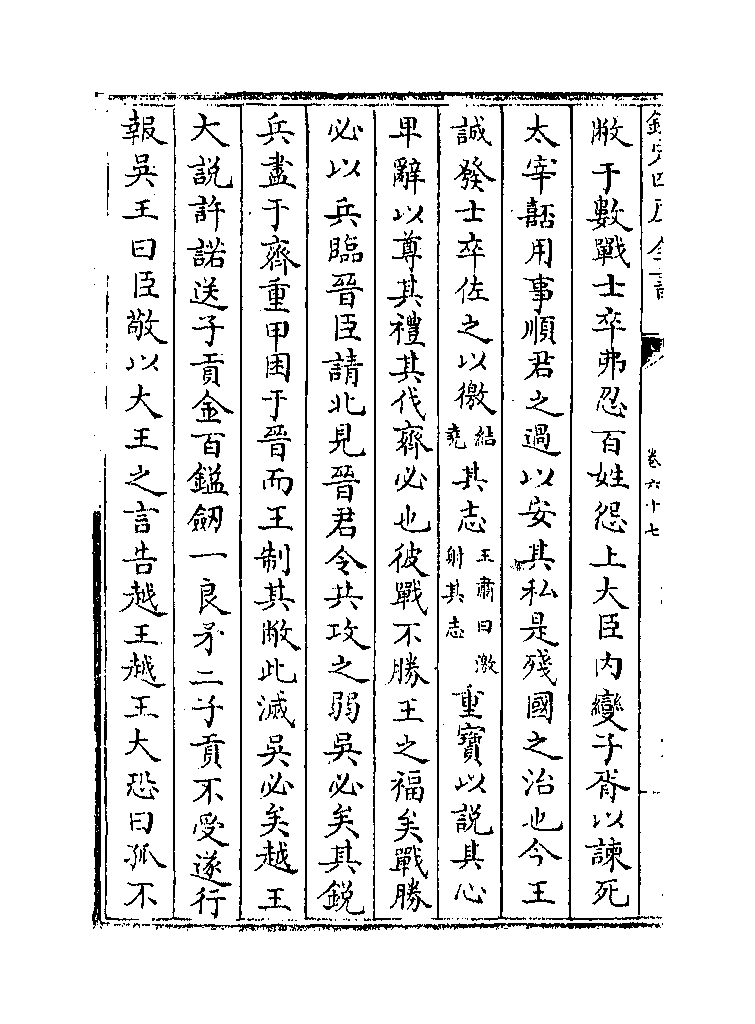 欽定四庫全書
卷六十七
敝于數戰士卒弗忍百姓怨上大臣内變子胥以諫死
太宰嚭用事順君之過以安其私是殘國之治也今王
誠發士卒佐之以徼結堯其志王肅曰激射其志重寶以説其心
卑辭以尊其禮其伐齊必也彼戰不勝王之福矣戰勝
必以兵臨晉臣請北見晉君令共攻之弱吳必矣其銳
兵盡于齊重甲困于晉而王制其敝此滅吳必矣越王
大説許諾送子貢金百鎰劒一良矛二子貢不受遂行
報吳王曰臣敬以大王之言告越王越王大恐曰孤不